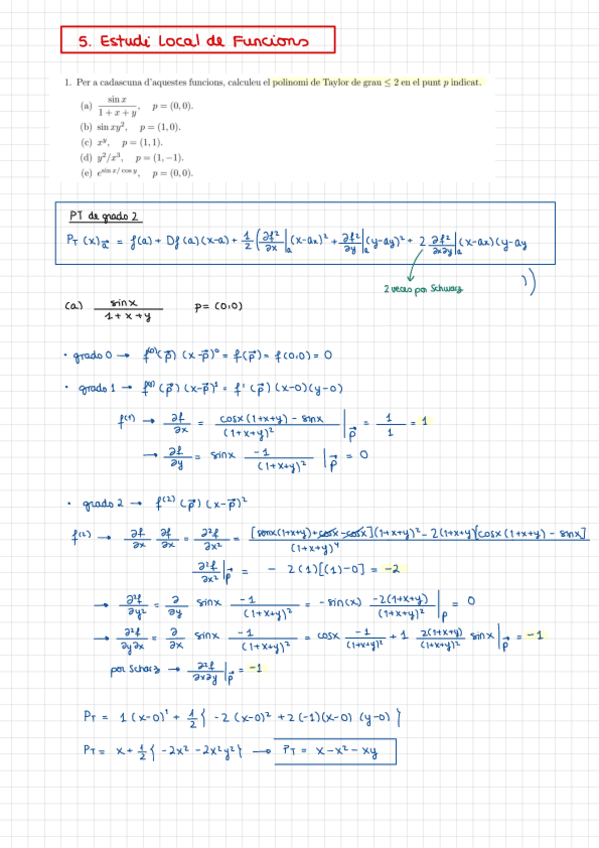 5. Estudi Local de Funcions
1. Per a cadascuna d'aquestes funcions, calculeu el polinomi de Taylor de grau ≤ 2 en el punt p indicat.
(a) sin x / 1 + x + y, p = (0, 0).
(b) sin xy², p = (1, 0).
(c) x^y, p = (1, 1).
(d) y²/x³, p = (1, −1).
(e) e^{sin x/ cos y}, p = (0, 0).
PT de grado 2
P_T (x)_a⃗ = f(a) + Df(a)(x-a) + 1/2 ( ∂f²/∂x |_a (x-ax)² + ∂f²/∂y |_a (y-ay)² + 2 ∂f²/∂x∂y |_a (x-ax)(y-ay
))
2 veces por Schwarz
(a) sinx / 1 + x + y p = (0,0)
· grado 0 → f^(0)(p⃗) (x-p⃗)⁰ = f(p⃗) = f(0,0) = 0
· grado 1 → f^(1)(p⃗)(x-p⃗)¹ = f'(p⃗)(x-0)(y-0)
f^(1) → ∂f/∂x = cosx(1+x+y) - sinx / (1+x+y)² |_p⃗ = 1/1 = 1
→ ∂f/∂y = sinx -1/(1+x+y)² |_p⃗ = 0
· grado 2 → f^(2)(p⃗)(x-p⃗)²
f^(2) → ∂f/∂x ∂f/∂x = ∂²f/∂x² = [sinx(1+x+y)+cosx-cosx](1+x+y)² - 2(1+x+y)[cosx(1+x+y) - sinx] / (1+x+y)⁴
∂²f/∂x² |_p⃗ = - 2(1)[(1)-0] = -2
→ ∂²f/∂y² = ∂/∂y sinx -1/(1+x+y)² = -sin(x) -2(1+x+y)/(1+x+y)² |_p = 0
→ ∂²f/∂y∂x = ∂/∂x sinx -1/(1+x+y)² = cosx -1/(1+x+y)² + 1 2(1+x+y)/(1+x+y)² sinx |_p⃗ = -1
por Scharz → ∂²f/∂x∂y |_p⃗ = -1
P_T = 1(x-0)¹ + 1/2 { -2(x-0)² + 2(-1)(x-0)(y-0) }
P_T = x + 1/2 { -2x² - 2x²y² } → P_T = x - x² - xy